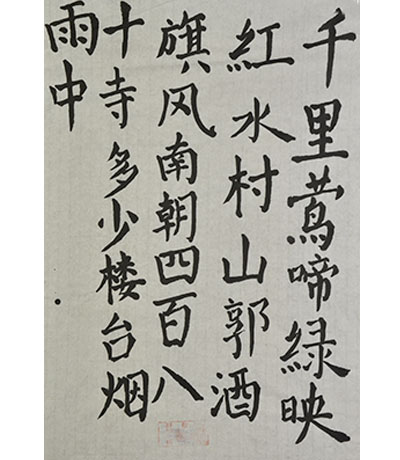 千里莺啼緑映
紅水村山郭酒
旗风南朝四百八
十寺多少楼台烟
雨中